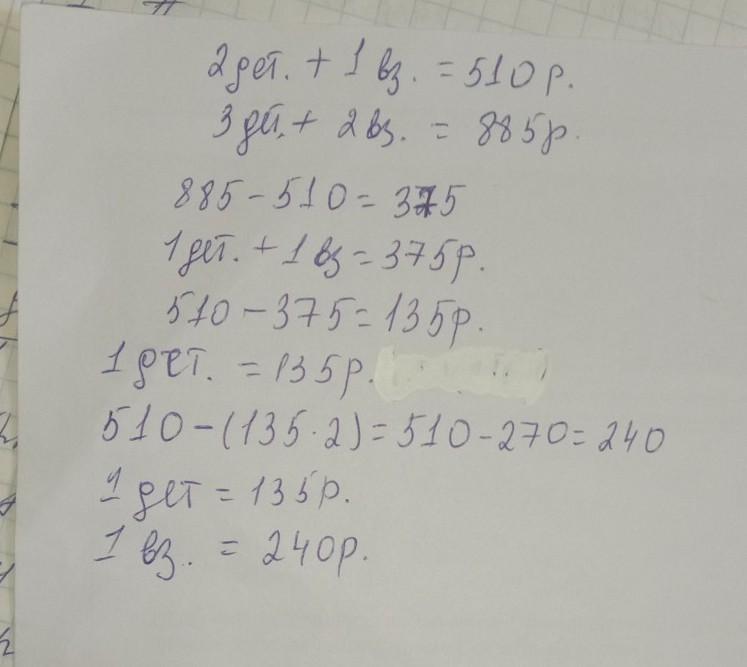 2 дет. + 1 вз. = 510 р.
3 дет. + 2 вз. = 885 р.
885 - 510 = 375
1 дет. + 1 вз = 375 р.
510 - 375 = 135 р.
1 дет. = 135 р.
510 - (135 · 2) = 510 - 270 = 240
1 дет = 135 р.
1 вз. = 240 р.